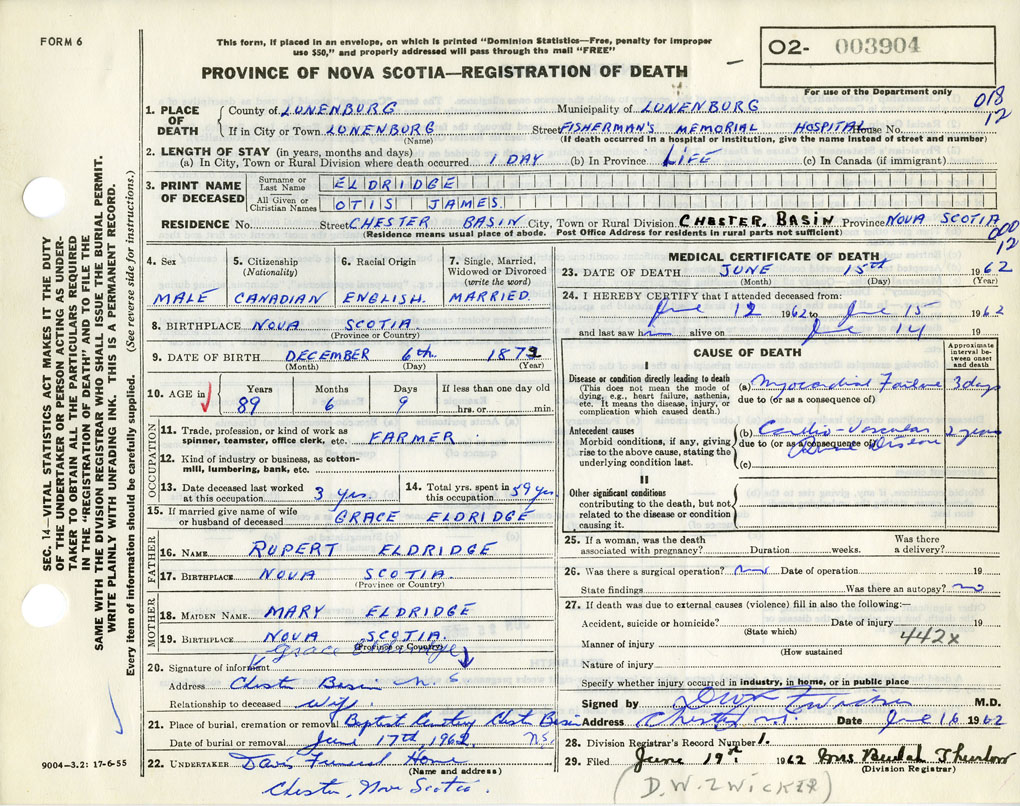 FORM 6
This form, if placed in an envelope, on which is printed "Dominion Statistics—Free, penalty for improper
use $50," and properly addressed will pass through the mail "FREE"
PROVINCE OF NOVA SCOTIA—REGISTRATION OF DEATH
O2- 003904
For use of the Department only
018
12
SEC. 14—VITAL STATISTICS ACT MAKES IT THE DUTY
OF THE UNDERTAKER OR PERSON ACTING AS UNDER-
TAKER TO OBTAIN ALL THE PARTICULARS REQUIRED
IN THE "REGISTRATION OF DEATH" AND TO FILE THE
SAME WITH THE DIVISION REGISTRAR WHO SHALL ISSUE THE BURIAL PERMIT.
WRITE PLAINLY WITH UNFADING INK. THIS IS A PERMANENT RECORD.
Every item of information should be carefully supplied. (See reverse side for instructions.)
1. PLACE OF DEATH
County of LUNENBURG Municipality of LUNENBURG
If in City or Town LUNENBURG Street FISHERMAN'S MEMORIAL HOSPITAL House No.
(Name) (If death occurred in a hospital or institution, give the name instead of street and number)
2. LENGTH OF STAY (in years, months and days)
(a) In City, Town or Rural Division where death occurred 1 DAY (b) In Province LIFE (c) In Canada (if immigrant)
3. PRINT NAME OF DECEASED
Surname or Last Name ELDRIDGE
All Given or Christian Names OTIS JAMES
RESIDENCE No. Street CHESTER BASIN City, Town or Rural Division CHESTER. BASIN Province NOVA SCOTIA
(Residence means usual place of abode. Post Office Address for residents in rural parts not sufficient)
000
12
4. Sex
MALE
5. Citizenship
(Nationality)
CANADIAN
6. Racial Origin
ENGLISH.
7. Single, Married,
Widowed or Divorced
(write the word)
MARRIED.
8. BIRTHPLACE NOVA SCOTIA.
(Province or Country)
9. DATE OF BIRTH DECEMBER 6th 1872
(Month) (Day) (Year)
10. AGE in
Years Months Days If less than one day old
89 6 9 hrs. or min.
OCCUPATION
11. Trade, profession, or kind of work as
spinner, teamster, office clerk, etc. FARMER.
12. Kind of industry or business, as cotton-
mill, lumbering, bank, etc.
13. Date deceased last worked
at this occupation 3 yrs.
14. Total yrs. spent in
this occupation 59 yrs
15. If married give name of wife
or husband of deceased GRACE ELDRIDGE
FATHER
16. NAME RUPERT ELDRIDGE
17. BIRTHPLACE NOVA SCOTIA.
(Province or Country)
MOTHER
18. MAIDEN NAME MARY ELDRIDGE
19. BIRTHPLACE NOVA SCOTIA.
(Province or Country)
20. Signature of informant Grace Eldridge
Address Chester Basin N. S
Relationship to deceased wife.
21. Place of burial, cremation or removal Baptist Cemetery Chester Basin
Date of burial or removal June 17th, 1962 N.S.
22. UNDERTAKER Davis Funeral Home
(Name and address)
Chester, Nova Scotia.
9004-3.2: 17-6-55
MEDICAL CERTIFICATE OF DEATH
23. DATE OF DEATH JUNE 15th 1962
(Month) (Day) (Year)
24. I HEREBY CERTIFY that I attended deceased from:
June 12 1962 to June 15 1962
and last saw him alive on June 14 19
CAUSE OF DEATH
Approximate interval between onset and death
I
Disease or condition directly leading to death
(This does not mean the mode of
dying, e.g., heart failure, asthenia,
etc. It means the disease, injury, or
complication which caused death.)
(a) Myocardial Failure 3 days
due to (or as a consequence of)
Antecedent causes
Morbid conditions, if any, giving
rise to the above cause, stating the
underlying condition last.
(b) Cardio-Vascular 2 years
due to (or as a consequence of)
Disease
(c)
II
Other significant conditions
contributing to the death, but not
related to the disease or condition
causing it.
25. If a woman, was the death
associated with pregnancy? Duration weeks. Was there
a delivery?
26. Was there a surgical operation? no Date of operation 19
State findings Was there an autopsy? no
27. If death was due to external causes (violence) fill in also the following:—
Accident, suicide or homicide? Date of injury 19
(State which)
442x
Manner of injury
(How sustained
Nature of injury
Specify whether injury occurred in industry, in home, or in public place
Signed by D W Zwicker M.D.
Address Chester N.S. Date June 16 1962
28. Division Registrar's Record Number 1.
29. Filed June 19th 1962 Mrs Beulah Thurlow
(Division Registrar)
(D.W. ZWICKER)